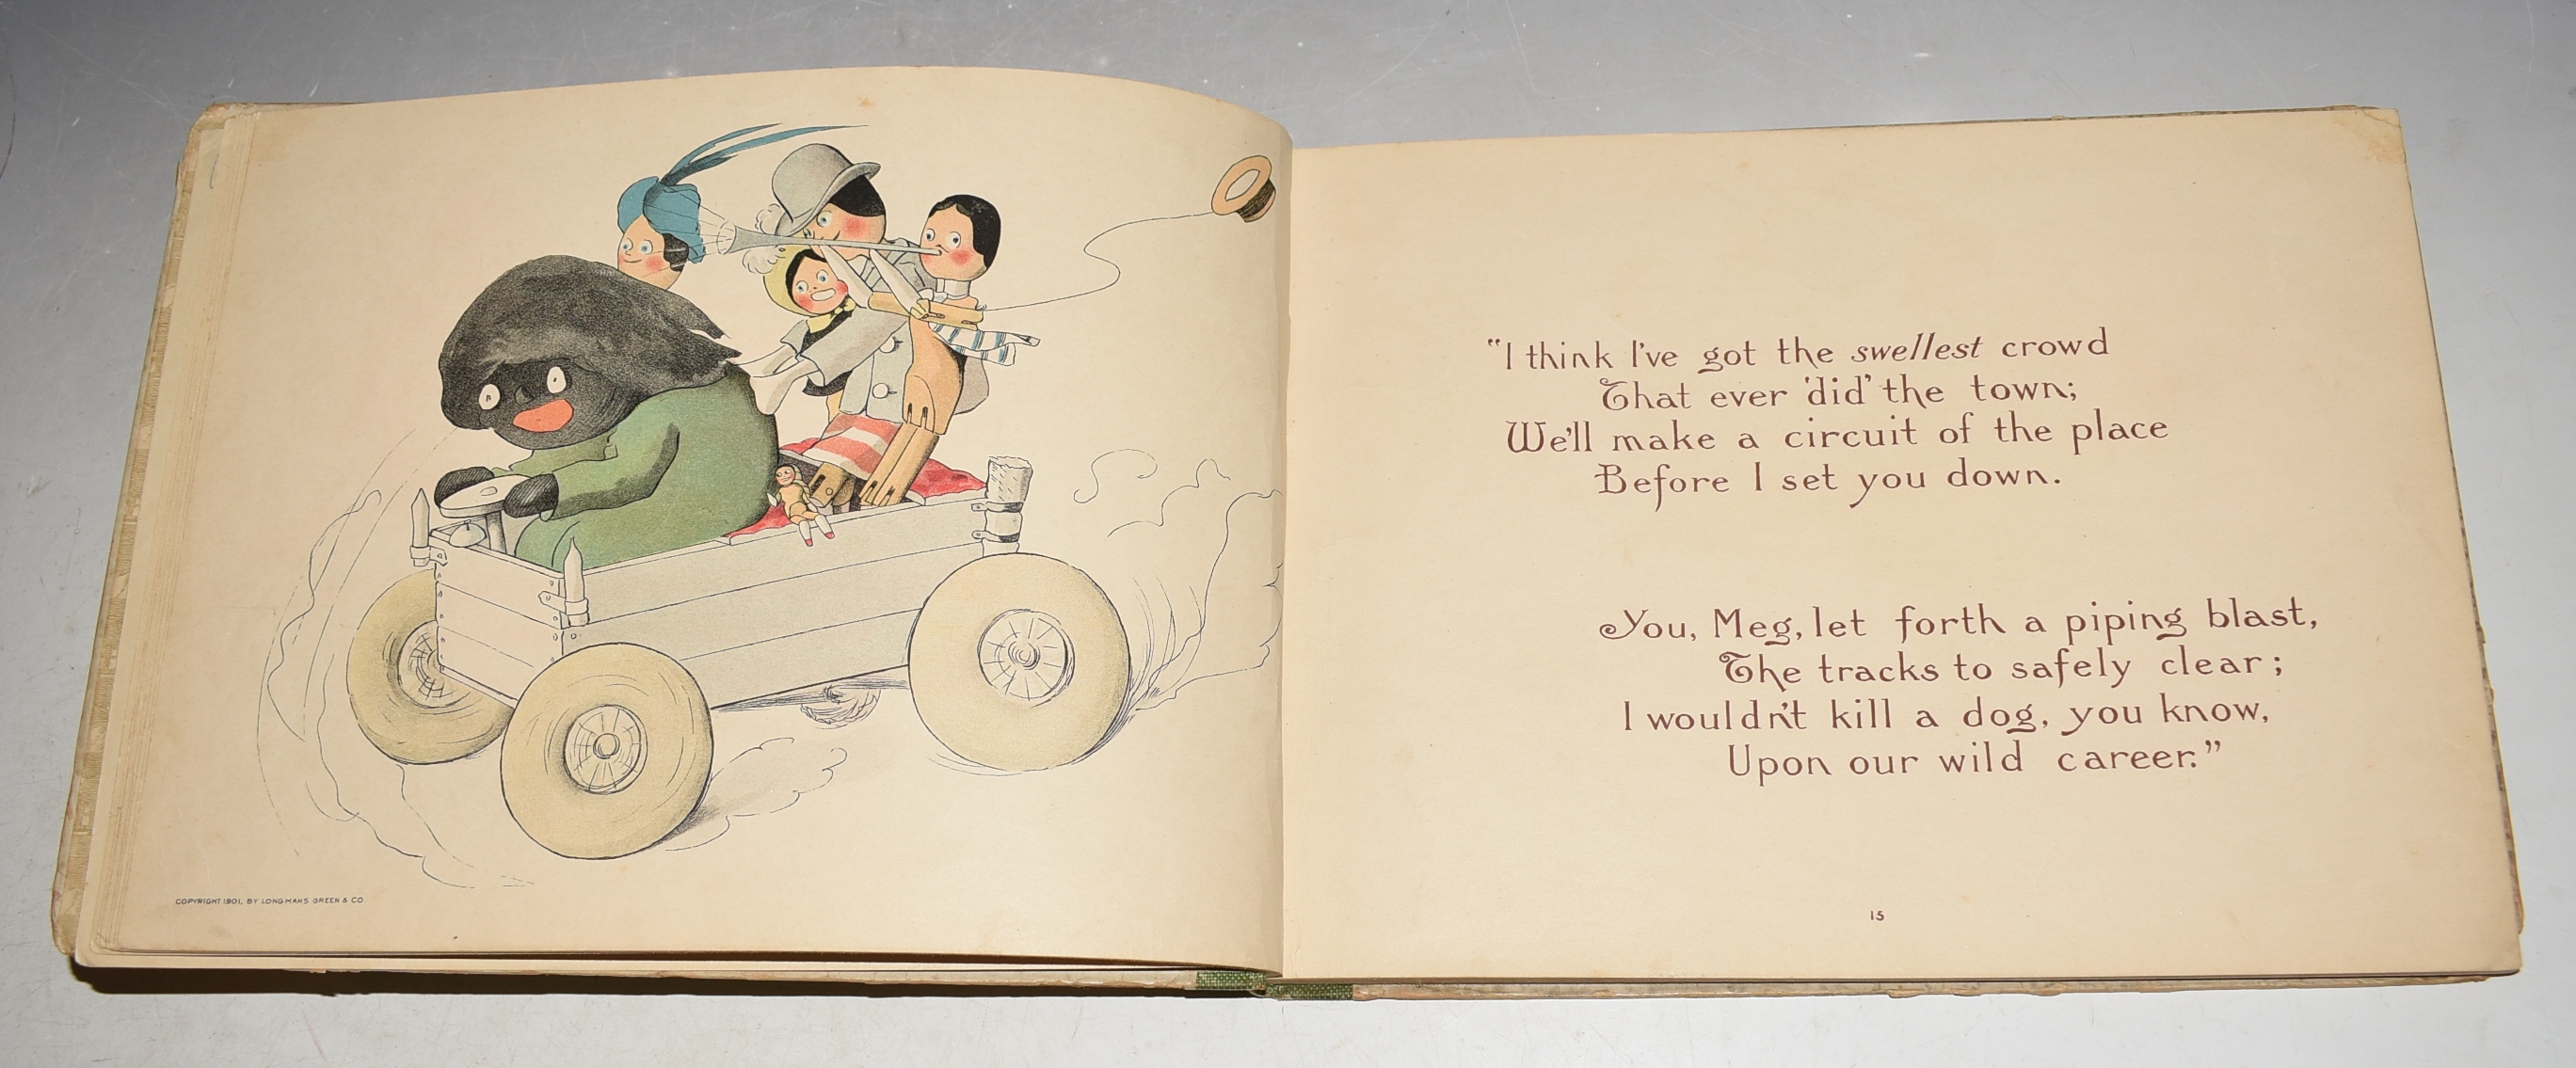 COPYRIGHT 1901, BY LONGMANS GREEN & CO
"I think I've got the swellest crowd
That ever 'did' the town;
We'll make a circuit of the place
Before I set you down.
You, Meg, let forth a piping blast,
The tracks to safely clear;
I wouldn't kill a dog, you know,
Upon our wild career."
15